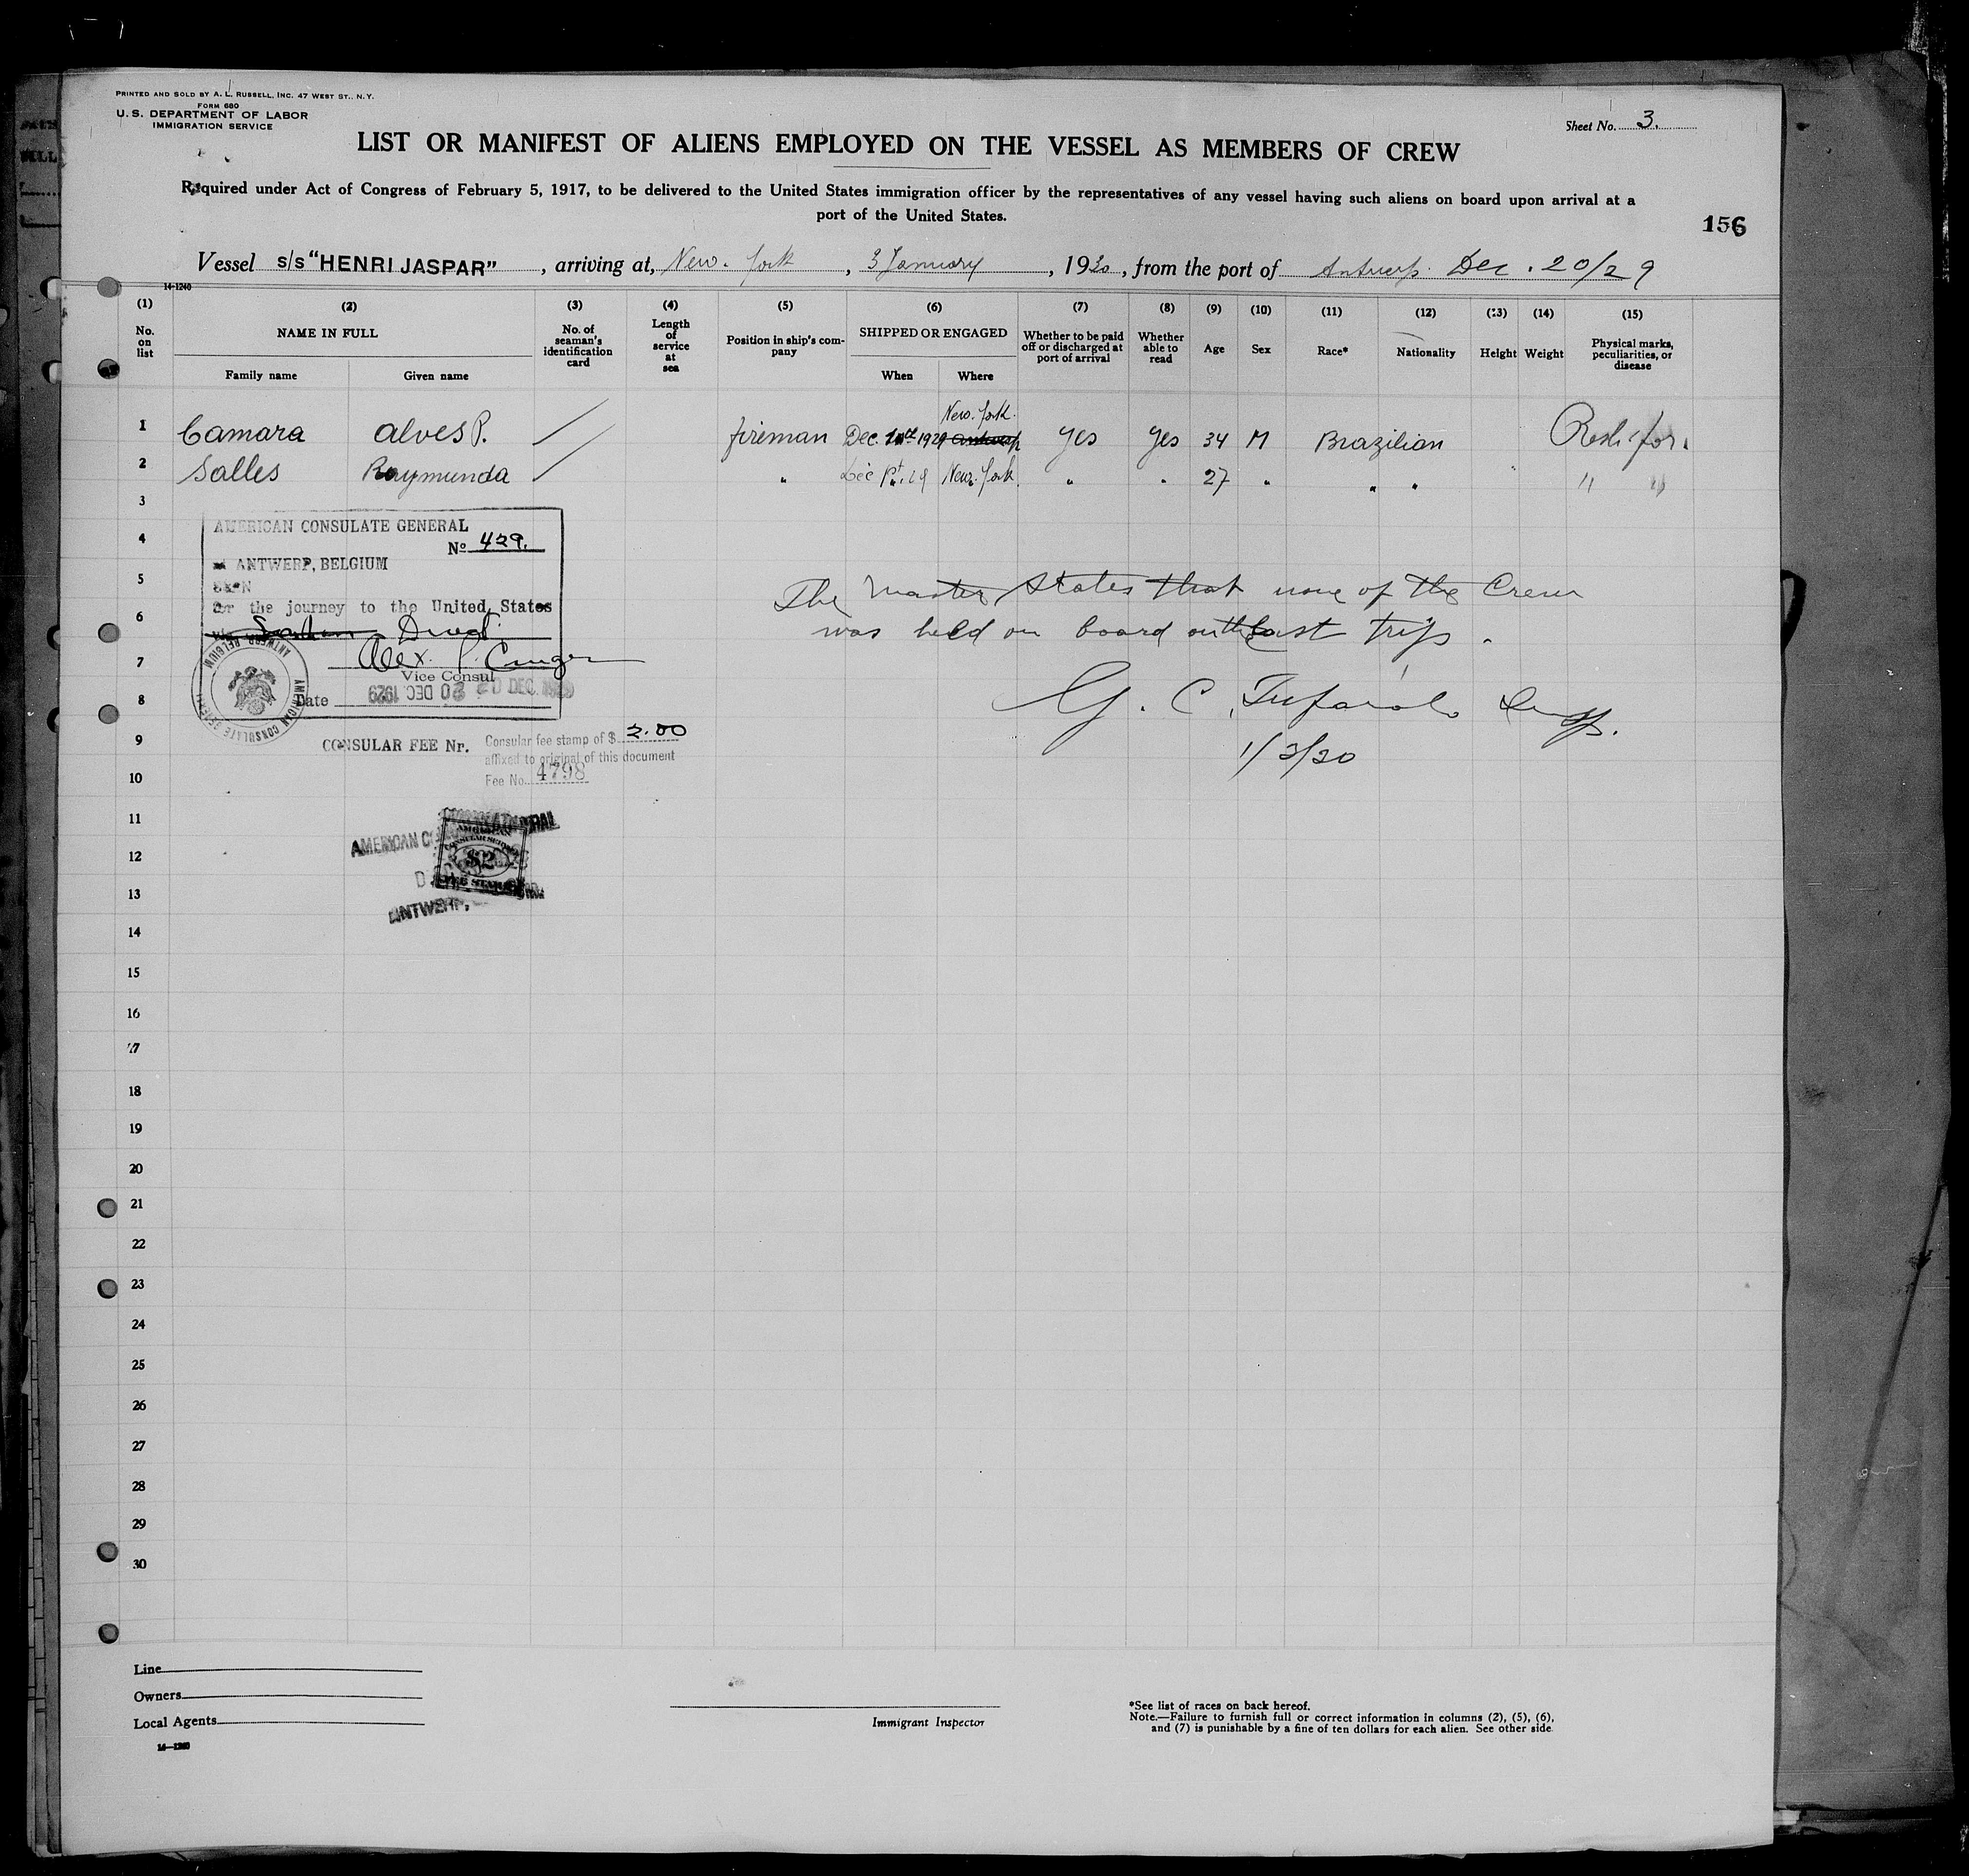 PRINTED AND SOLD BY A. L. RUSSELL, INC. 47 WEST ST., N.Y.
FORM 680
U. S. DEPARTMENT OF LABOR
IMMIGRATION SERVICE
Sheet No. 3.
LIST OR MANIFEST OF ALIENS EMPLOYED ON THE VESSEL AS MEMBERS OF CREW
Required under Act of Congress of February 5, 1917, to be delivered to the United States immigration officer by the representatives of any vessel having such aliens on board upon arrival at a
port of the United States.
156
Vessel s/s "HENRI JASPAR", arriving at, New. York, 3 January, 1930, from the port of Antwerp. Dec. 20/29
14-1240
(1) (2) (3) (4) (5) (6) (7) (8) (9) (10) (11) (12) (13) (14) (15)
No. on list
NAME IN FULL
Family name Given name
No. of seaman's identification card
Length of service at sea
Position in ship's company
SHIPPED OR ENGAGED
When Where
Whether to be paid off or discharged at port of arrival
Whether able to read
Age
Sex
Race*
Nationality
Height
Weight
Physical marks, peculiarities, or disease
New. York.
1 Camara Alves P. fireman Dec. 1929 Antwerp yes yes 34 M Brazilian
2 Salles Raymunda " Dec 1st. 29 New. York. " " 27 " " " " "
3
AMERICAN CONSULATE GENERAL
4
No 429.
ANTWERP, BELGIUM
5
SEEN
for the journey to the United States
6
Direct
Alex. P. Cruger
7
Vice Consul
8
Date 20 DEC 1929 20 DEC. 1929
AMERICAN CONSULATE GENERAL ANTWERP, BELGIUM
The master states that none of the Crew
was held on board on the last trip.
G. C. Insp.
1/3/30
9
CONSULAR FEE Nr. Consular fee stamp of $ 2.00
affixed to original of this document
10
Fee No. 4798
11
AMERICAN
CONSULAR SERVICE
12
$2
FEE STAMP
13
ANTWERP,
14
15
16
17
18
19
20
21
22
23
24
25
26
27
28
29
30
Line
Owners
Local Agents
14-1240
Immigrant Inspector
*See list of races on back hereof.
Note.—Failure to furnish full or correct information in columns (2), (5), (6),
and (7) is punishable by a fine of ten dollars for each alien. See other side